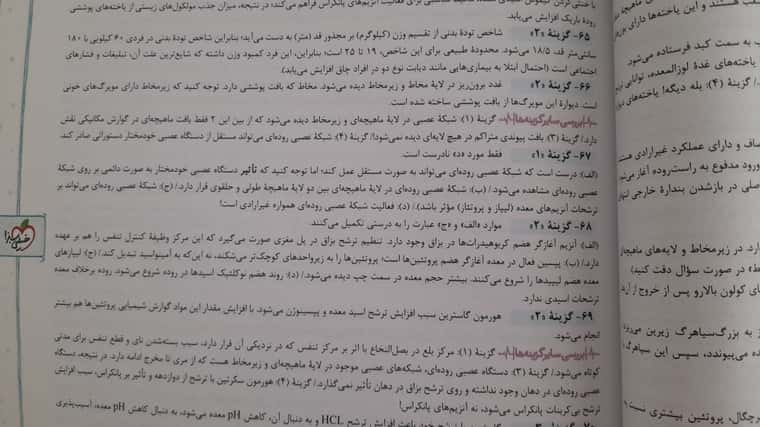 با خنثی کردن کیموس اسیدی معده، محیط مناسبی برای فعالیت آنزیم‌های پانکراس فراهم می‌کند؛ در نتیجه، میزان جذب مولکول‌های زیستی از یاخته‌های پوششی
رودهٔ باریک افزایش می‌یابد.
۶۵- گزینهٔ «۲» شاخص تودهٔ بدنی از تقسیم وزن (کیلوگرم) بر مجذور قد (متر) به دست می‌آید؛ بنابراین شاخص تودهٔ بدنی در فردی ۶۰ کیلویی با ۱۸۰
سانتی‌متر قد، ۱۸/۵ می‌شود. محدودهٔ طبیعی برای این شاخص، ۱۹ تا ۲۵ است؛ بنابراین، این فرد کمبود وزن داشته که شایع‌ترین علت آن، تبلیغات و فشارهای
اجتماعی است (احتمال ابتلا به بیماری‌هایی مانند دیابت نوع دو در افراد چاق افزایش می‌یابد).
۶۶- گزینهٔ «۲» غدد برون‌ریز در لایهٔ مخاط و زیرمخاط دیده می‌شود. مخاط که بافت پوششی دارد. توجه کنید که زیرمخاط دارای مویرگ‌های خونی
است. دیوارهٔ این مویرگ‌ها از بافت پوششی ساخته شده است.
بررسی سایر گزینه‌ها گزینهٔ (۱): شبکهٔ عصبی در لایهٔ ماهیچه‌ای و زیرمخاط دیده می‌شود که از بین این ۲ فقط بافت ماهیچه‌ای در گوارش مکانیکی نقش
دارد./ گزینهٔ (۳): بافت پیوندی متراکم در هیچ لایه‌ای دیده نمی‌شود!/ گزینهٔ (۴): شبکهٔ عصبی روده‌ای می‌تواند مستقل از دستگاه عصبی خودمختار دستوراتی صادر کند.
۶۷- گزینهٔ «۱» فقط مورد «د» نادرست است.
(الف): درست است که شبکهٔ عصبی روده‌ای می‌تواند به صورت مستقل عمل کند؛ اما توجه کنید که تأثیر دستگاه عصبی خودمختار به صورت دائمی بر روی شبکهٔ
عصبی روده‌ای مشاهده می‌شود./ (ب): شبکهٔ عصبی روده‌ای در لایهٔ ماهیچه‌ای بین دو لایهٔ ماهیچهٔ طولی و حلقوی قرار دارد./ (ج): شبکهٔ عصبی روده‌ای می‌تواند بر
ترشحات آنزیم‌های معده (لیپاز و پروتئاز) مؤثر باشد)./ (د): فعالیت شبکهٔ عصبی روده‌ای همواره غیرارادی است!
۶۸- گزینهٔ «۲» موارد «الف» و «ج» عبارت را به درستی تکمیل می‌کنند.
(الف): آنزیم آغازگر هضم کربوهیدرات‌ها در بزاق وجود دارد. تنظیم ترشح بزاق در پل مغزی صورت می‌گیرد که این مرکز وظیفهٔ کنترل تنفس را هم بر عهده
دارد./ (ب): پپسین فعال در معده آغازگر هضم پروتئین‌ها است؛ پروتئین‌ها را به زیرواحدهای کوچک‌تر می‌شکند، نه این‌که به آمینواسید تبدیل کند./ (ج): لیپازهای
معده هضم لیپیدها را شروع می‌کنند. بیشتر حجم معده در سمت چپ دیده می‌شود./ (د): روند هضم نوکلئیک اسیدها در روده شروع می‌شود. روده برخلاف معده
ترشحات اسیدی ندارد.
۶۹- گزینهٔ «۲» هورمون گاسترین سبب افزایش ترشح اسید معده و پپسینوژن می‌شود. با افزایش مقدار این مواد گوارش شیمیایی پروتئین‌ها هم بیشتر
انجام می‌شود.
بررسی سایر گزینه‌ها گزینهٔ (۱): مرکز بلع در بصل‌النخاع با اثر بر مرکز تنفس که در نزدیکی آن قرار دارد، سبب بسته‌شدن نای و قطع تنفس برای مدتی
کوتاه می‌شود./ گزینهٔ (۳): دستگاه عصبی روده‌ای، شبکه‌های عصبی موجود در لایهٔ ماهیچه‌ای و زیرمخاط هست که از مری تا مخرج ادامه دارد. در نتیجه، دستگاه
عصبی روده‌ای در دهان وجود نداشته و روی ترشح بزاق در دهان تأثیر نمی‌گذارد./ گزینهٔ (۴): هورمون سکرتین با ترشح از دوازدهه و تأثیر بر پانکراس، سبب افزایش
ترشح بی‌کربنات پانکراس می‌شود، نه آنزیم‌های پانکراس!
ترشح HCl و به دنبال آن، کاهش pH معده می‌شود، به دنبال کاهش pH معده، آسیب‌پذیری